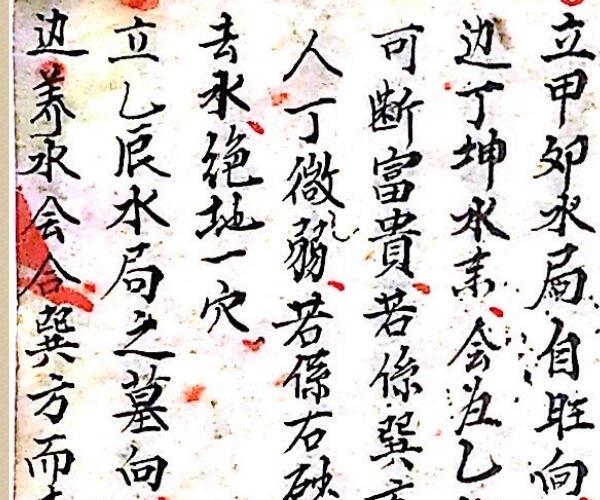 立甲卯水局自旺向
边丁坤水来会左乙
可断富貴若係巽方
人丁微弱若係右砂
去水絶地一穴
立乙辰水局之墓向
边养水会合巽方而